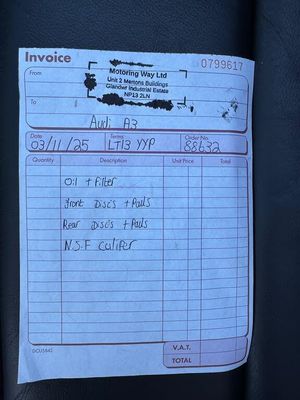 Invoice
0799617
From
Motoring Way Ltd
Unit 2 Mertons Buildings
Glandwr Industrial Estate
NP13 2LN
To
Audi A3
Date Terms Order No.
03/11/25 LT13 YYP 88632
Quantity Description Unit Price Total
Oil + Filter
Front Discs + Pads
Rear Discs + Pads
N.S.F Califer
V.A.T.
TOTAL